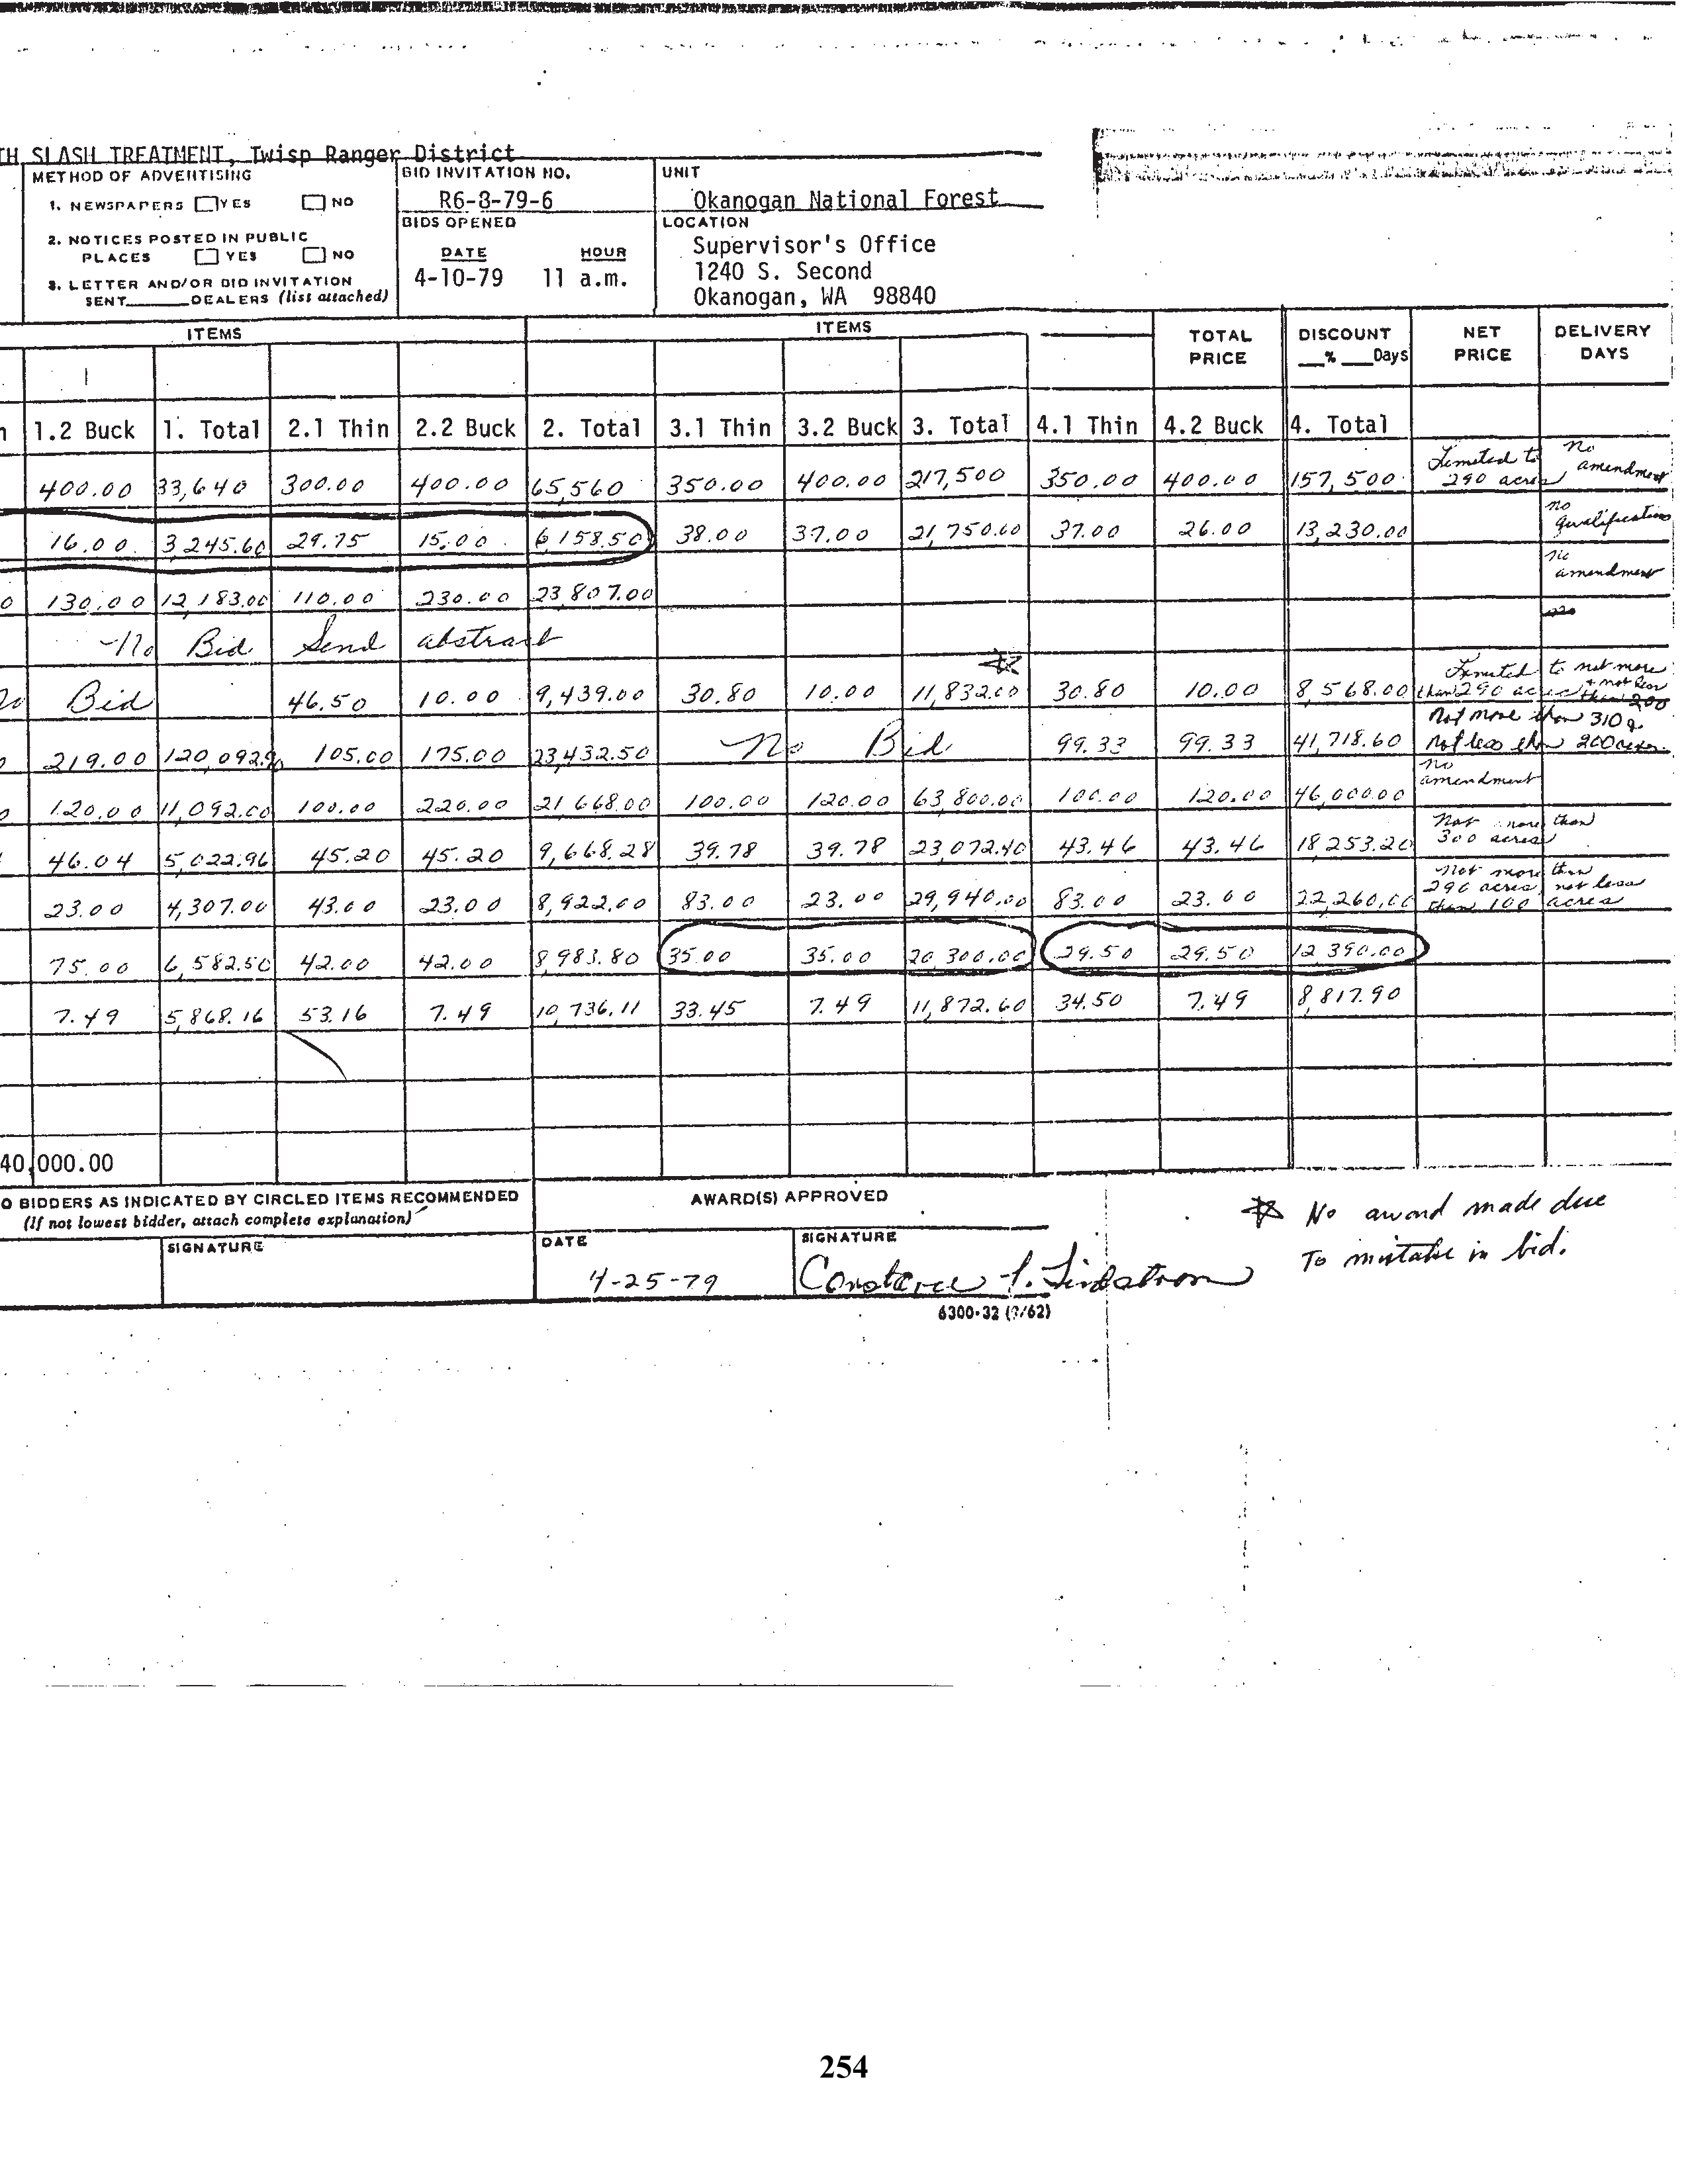 TH SLASH TREATMENT, Twisp Ranger District
METHOD OF ADVERTISING
1. NEWSPAPERS YES NO
2. NOTICES POSTED IN PUBLIC
PLACES YES NO
3. LETTER AND/OR BID INVITATION
SENT____DEALERS (list attached)
BID INVITATION NO.
R6-8-79-6
BIDS OPENED
DATE HOUR
4-10-79 11 a.m.
UNIT
Okanogan National Forest
LOCATION
Supervisor's Office
1240 S. Second
Okanogan, WA 98840
ITEMS ITEMS
TOTAL PRICE DISCOUNT __% ___Days NET PRICE DELIVERY DAYS
1.2 Buck 1. Total 2.1 Thin 2.2 Buck 2. Total 3.1 Thin 3.2 Buck 3. Total 4.1 Thin 4.2 Buck 4. Total
400.00 33,640 300.00 400.00 65,560 350.00 400.00 217,500 350.00 400.00 157,500 Limited to 290 acres no amendment
16.00 3245.60 29.75 15.00 6158.50 38.00 37.00 21,750.00 37.00 26.00 13,230.00 no qualifications
130.00 12,183.00 110.00 230.00 23807.00 no amendment
No Bid Send abstract
no Bid 46.50 10.00 9,439.00 30.80 10.00 11,832.00 30.80 10.00 8,568.00 Limited to not more than 290 acres & not less than 200
219.00 120,092.90 105.00 175.00 23,432.50 No Bid 99.33 99.33 41,718.60 Not more than 310 & not less than 200 acres.
120.00 11,092.00 100.00 220.00 21668.00 100.00 120.00 63,800.00 100.00 120.00 46,000.00 no amendment
46.04 5,022.96 45.20 45.20 9,668.28 39.78 39.78 23,072.40 43.46 43.46 18253.20 Not more than 300 acres
23.00 4,307.00 43.00 23.00 8,922.00 83.00 23.00 29,940.00 83.00 23.00 22,260.00 Not more than 290 acres, not less than 100 acres
75.00 6,582.50 42.00 42.00 8983.80 35.00 35.00 20300.00 29.50 29.50 12390.00
7.49 5,868.16 53.16 7.49 10,736.11 33.45 7.49 11,872.60 34.50 7.49 8,817.90
40,000.00
O BIDDERS AS INDICATED BY CIRCLED ITEMS RECOMMENDED
(If not lowest bidder, attach complete explanation)
SIGNATURE
AWARD(S) APPROVED
DATE
4-25-79
SIGNATURE
6300-32 (9/62)
No award made due
To mistake in bid.
254